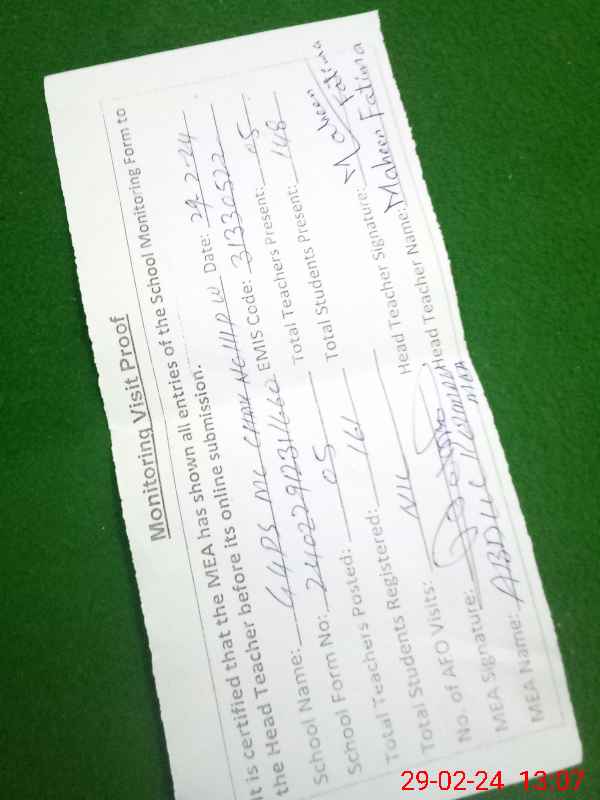 Monitoring Visit Proof
It is certified that the MEA has shown all entries of the School Monitoring Form to
the Head Teacher before its online submission.
School Name: GGPS MC CHAK Date: 29-2-24
School Form No: EMIS Code: 31330522
Total Teachers Posted: 05 Total Teachers Present: 05
Total Students Registered: 161 Total Students Present: 148
No. of AFO Visits: NIL
MEA Signature: Head Teacher Signature: Maheen Fatima
MEA Name: ABDUL Head Teacher Name: Maheen Fatima
29-02-24 13:07